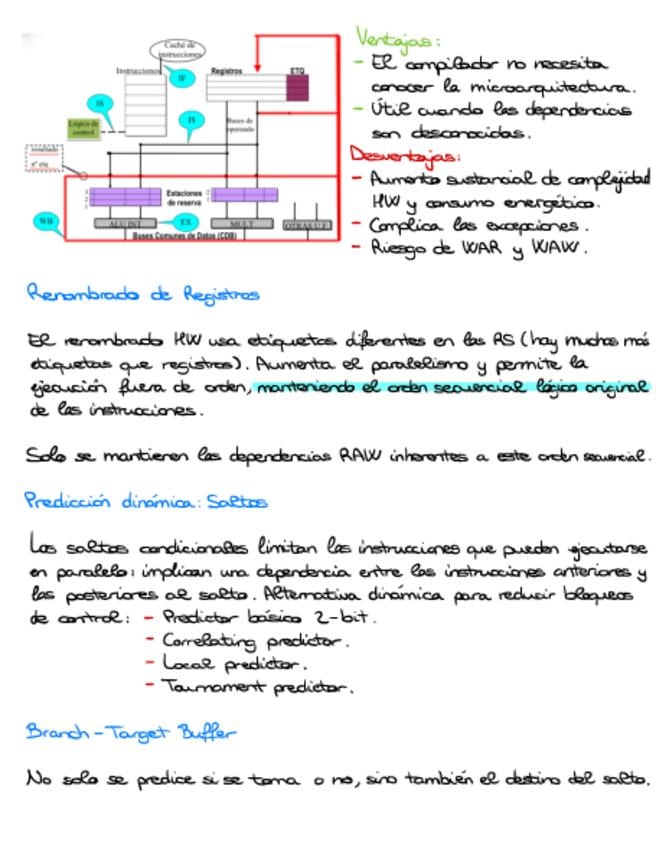 Caché de
instrucciones
Instrucciones
IF
Registros
ETQ
IS
Lógica de
control
IS
Buses de
operando
resultado
nº etiq
Estaciones
de reserva
3
2
1
2
1
WB
ALU INT
EX
MULT
OTRAS U.F.
Buses Comunes de Datos (CDB)
Ventajas:
- El compilador no necesita
conocer la microarquitectura.
- Útil cuando las dependencias
son desconocidas.
Desventajas:
- Aumento sustancial de complejidad
HW y consumo energético.
- Complica las excepciones.
- Riesgo de WAR y WAW.
Renombrado de Registros
El renombrado HW usa etiquetas diferentes en las RS (hay muchas más
etiquetas que registros). Aumenta el paralelismo y permite la
ejecución fuera de orden, manteniendo el orden secuencial lógico original
de las instrucciones.
Solo se mantienen las dependencias RAW inherentes a este orden secuencial.
Predicción dinámica: Saltos
Los saltos condicionales limitan las instrucciones que pueden ejecutarse
en paralelo: implican una dependencia entre las instrucciones anteriores y
las posteriores al salto. Alternativa dinámica para reducir bloqueos
de control: - Predictor básico 2-bit.
- Correlating predictor.
- Local predictor.
- Tournament predictor.
Branch-Target Buffer
No solo se predice si se toma o no, sino también el destino del salto.